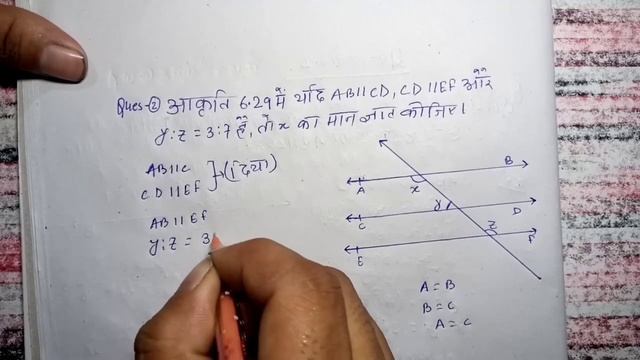 Ques-② आकृति 6.29 में यदि AB||CD, CD||EF और
y:z = 3:7 है, तो x का मान ज्ञात कीजिए।
AB||C
CD||EF ]→(दिया)
AB||EF
y:z = 3
A B
x
C y D
E z F
A = B
B = C
A = C